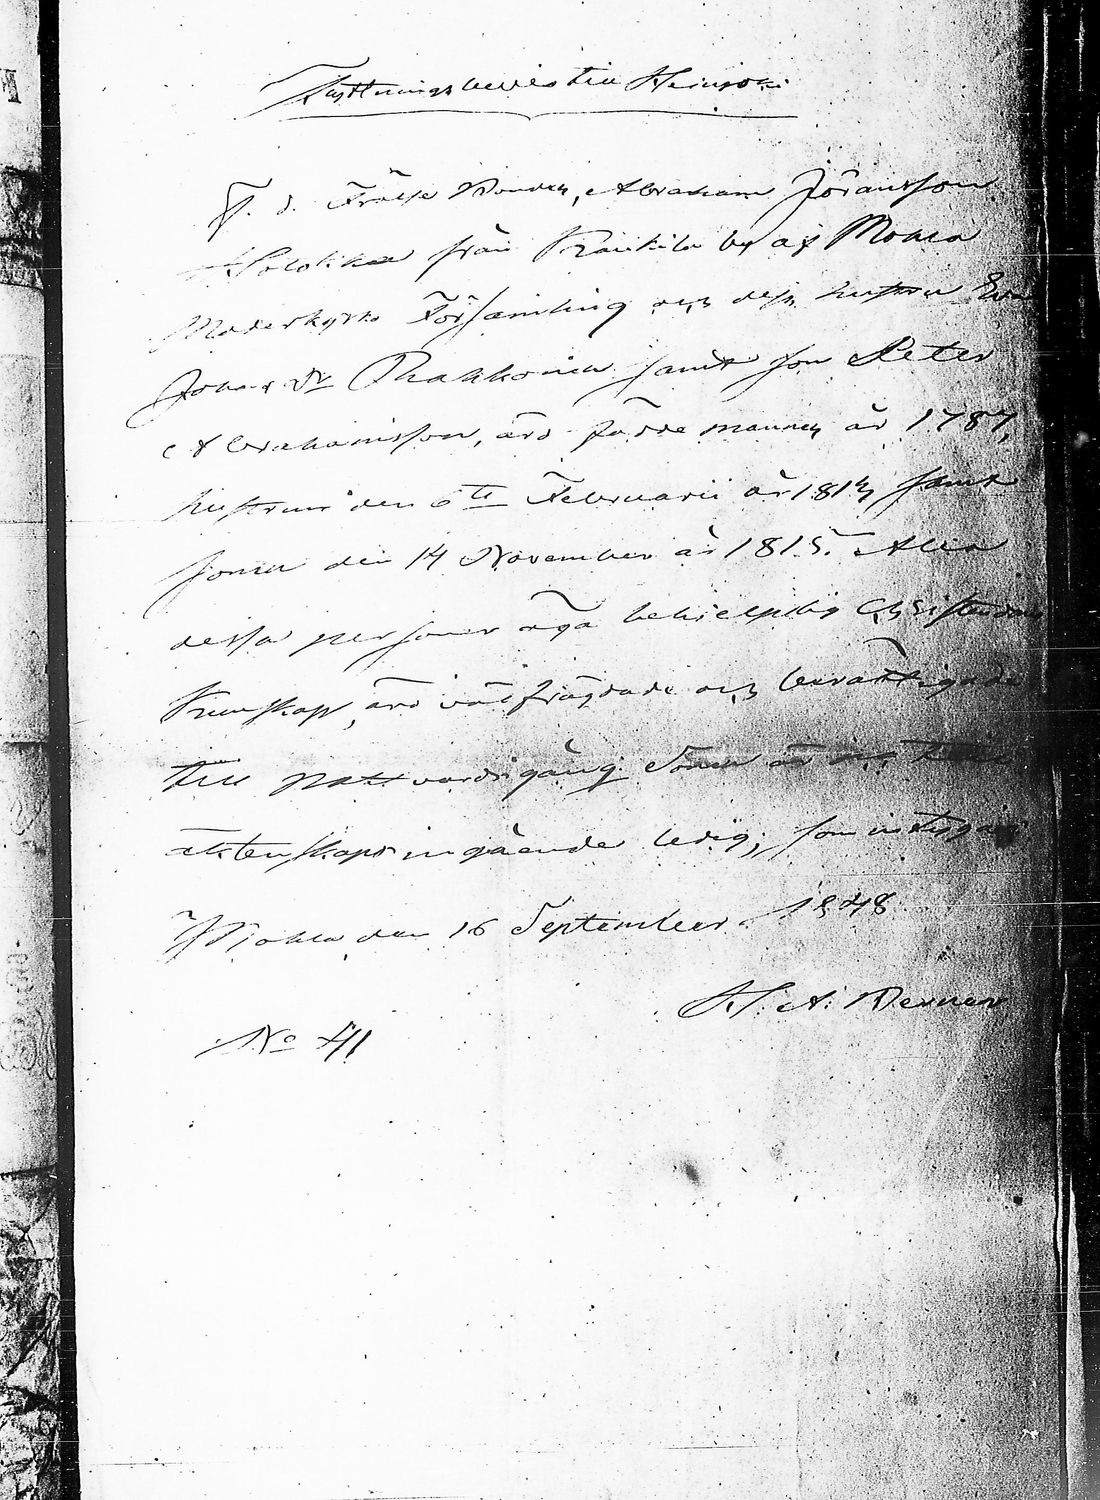 Flyttningsbevis till Heinjoki
F. d. Frälse Bonden, Abraham Jöransson
Holokka från Kankila by af Mohla
Moderkyrko Församling och dess hustru Eva
Johans Dr Phakkoinen samt son Peter
Abrahamsson, äro födde mannen år 1787,
hustrun den 6te Februarii år samt
sonen den 14 November år 1815. Alla
dessa personer äga behjelplig Christendoms
kunskap, äro välfrägdade och berättigade
till nattvardsgång Sonen är till
äktenskaps ingående ledig; som intygar
Mohla den 16 September 1848
H. A.
No 41